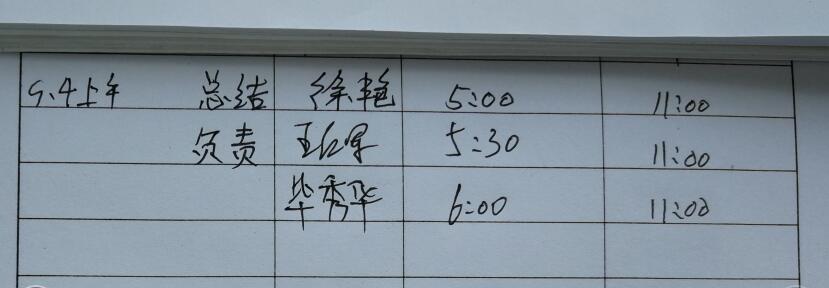 9.4上午 总结 徐艳 5:00 11:00
负责 王红军 5:30 11:00
毕秀华 6:00 11:00